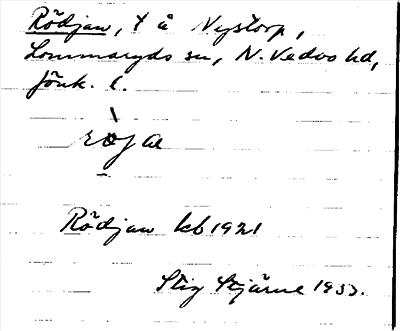 Rödjan, t å Nystorp,
Lommaryds sn, N. Vedbo hd,
Jönk. l.
Rödjan kb 1921
Stig Stjärne 1933.